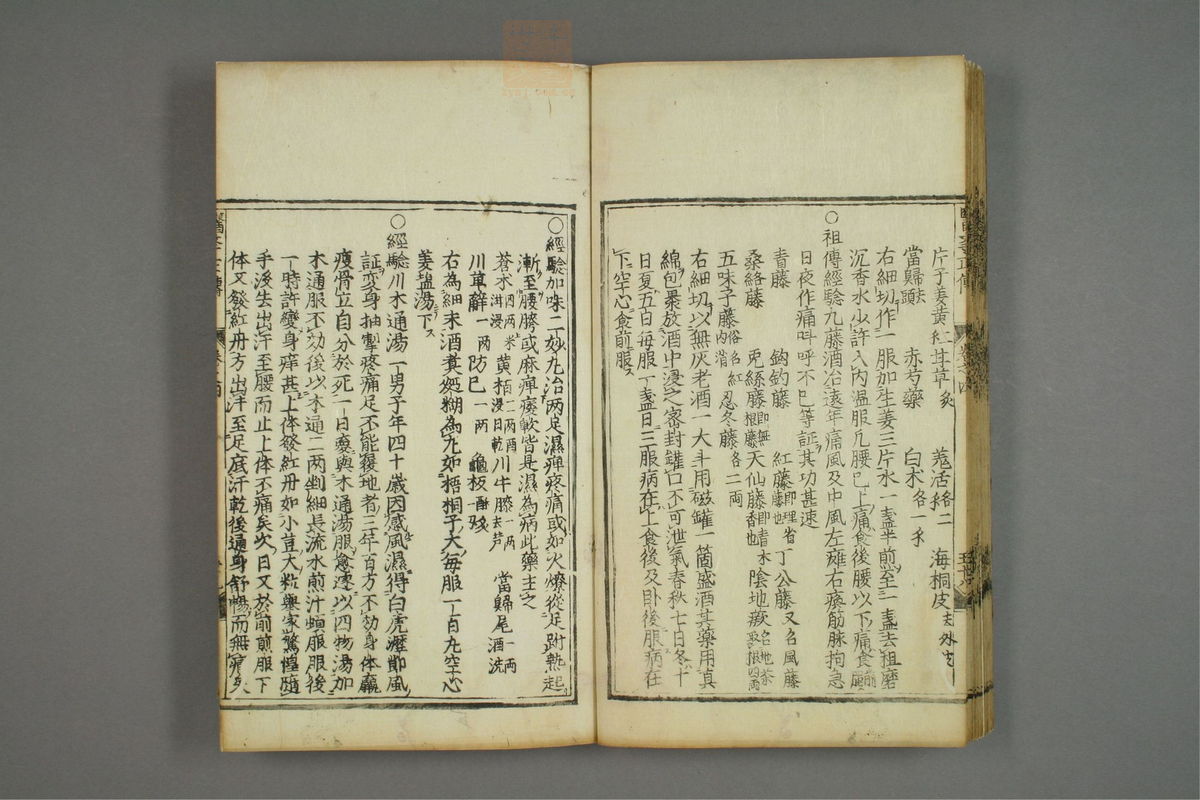 片子姜黃 紅甘草炙 羗活各二 海桐皮去外皮
當歸去頭 赤芍藥 白朮各一
右細切作一服加生姜三片水一盞半煎至一盞去粗磨
沉香水少許入內温服凡腰已上痛食後腰以下痛食前服
○祖傳經驗九藤酒治遠年痛風及中風左癱右瘓筋脉拘急
日夜作痛呌呼不已等証其功甚速
青藤 鈎釣藤 紅藤即理省藤也 丁公藤又名風藤
桑絡藤 兎絲藤即無根藤 天仙藤即青木香也 陰地蕨名地茶取根四兩
五味子藤俗名紅內消 忍冬藤各二両
右細切以無灰老酒一大斗用磁罐一箇盛酒其藥用真
綿包褁放酒中浸之密封罐口不可泄氣春秋七日冬十
日夏五日每服一盞日三服病在上食後及卧後服病在
下空心食前服
○經驗加味二妙丸治两足濕痺疼痛或如火燎從足跗熱起
漸至腰胯或麻痺痿軟皆是濕為病此藥主之
蒼朮四两米泔浸 黄栢二两酒浸日乾 川牛膝一两去芦 當歸尾一両酒洗
川萆薢一两 防已一两 龜板酥炙
右為細末酒煑麪糊為丸如梧桐子大每服一百丸空心
姜塩湯下
○經驗川木通湯一男子年四十歳因感風濕得白虎歷節風
証変身抽掣疼痛足不能履地者三年百方不効身体羸
瘦骨立自分於死一日夢與木通湯服愈遂以四物湯加
木通服不効後以木通二两剉細長流水煎汁頓服服後
一時許變身痒甚上体發紅丹如小豆大粒舉家驚惶隨
手沒生出汗至腰而止上体不痛矣次日又於前煎服下
体又發紅丹方出汗至足底汗乾後通身舒暢而無痛矣